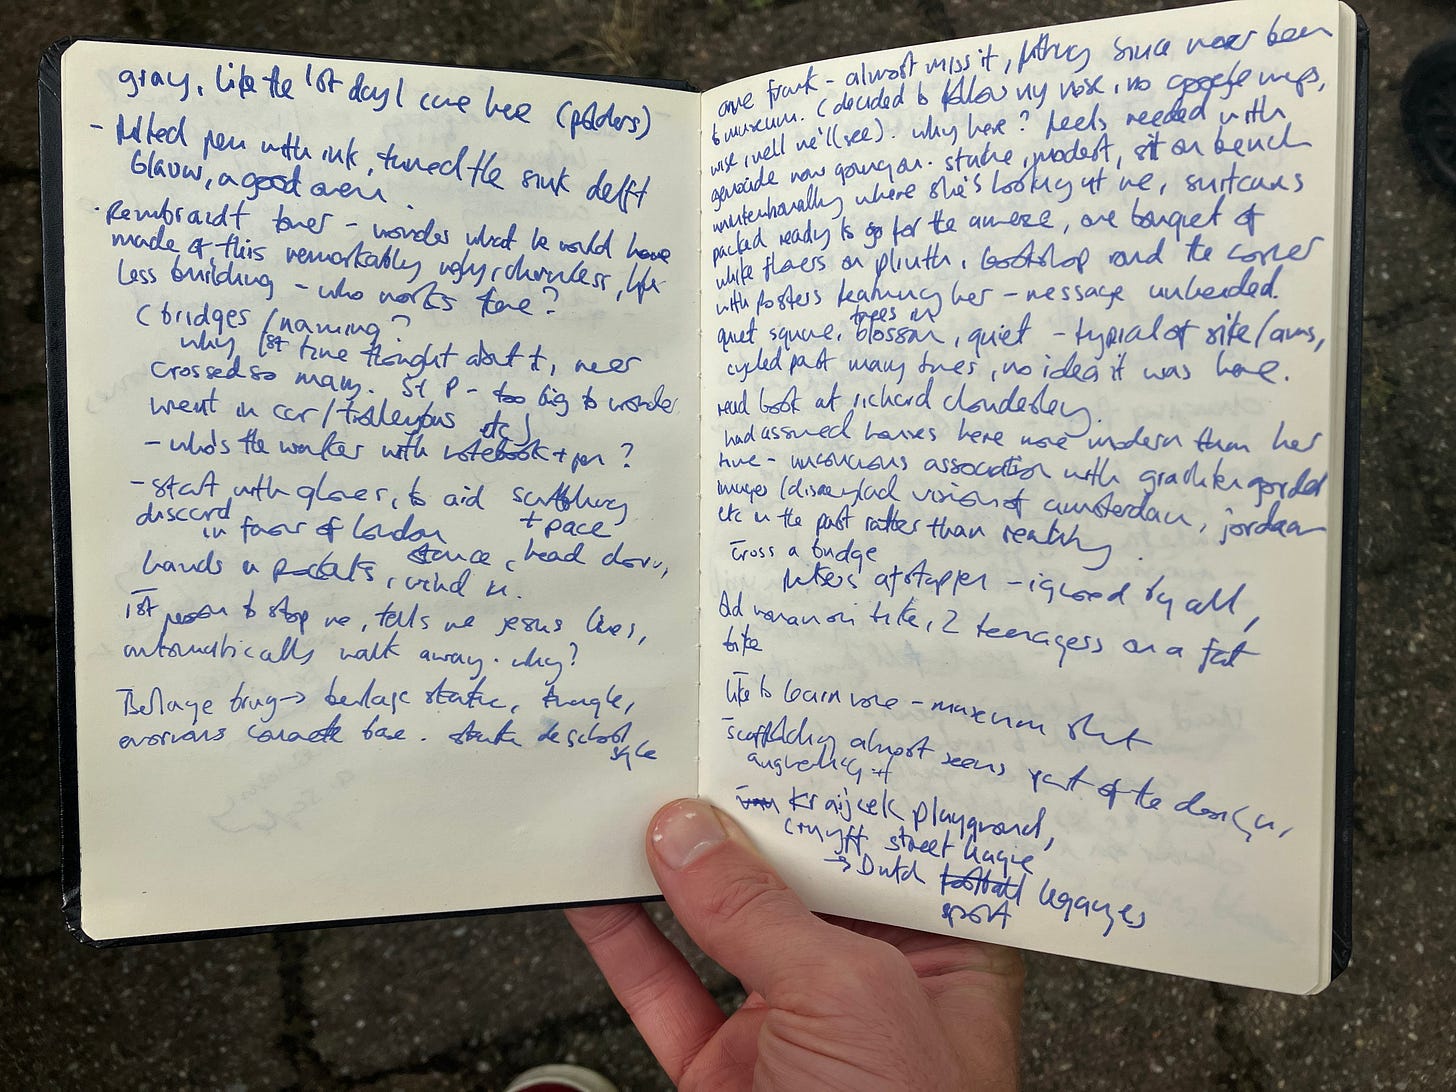 gray, like the 1st day I came here (polders)
- filled pen with ink, turned the sink delft
blauw, a good omen.
- Rembrandt tower - wonder what he would have
made of this remarkably ugly, charmless, life
less building - who works there?
(bridges / naming?
why 1st time thought about it, never
crossed so many. St P - too big to wonder
went in car/trolleybus etc)
- who's the walker with notebook + pen?
- start with gloves, to aid scribbling
discard + pace
in favour of London
hands in pockets, stance, head down,
wind in.
1st person to stop me, tells me jesus lives,
automatically walk away. why?
Berlage brug → berlage statue, triangle,
enormous concrete base. statue de school
style
anne frank - almost miss it, fitting since never been
to museum. (decided to follow my nose, no google maps,
wise, well we'll see). why here? feels needed with
genocide now going on. statue, modest, sit on bench
unintentionally where she's looking at me, suitcases
packed ready to go for the, one bouquet of
white flowers on plinth, bookshop round the corner
with posters featuring her - message unheeded.
trees in
quiet square, blossom, quiet - typical of site/ams,
cycled past many times, no idea it was here.
read book at richard cloudesley.
had assumed houses here more modern than her
time - unconscious association with grachtengordel
images (disneyland vision of amsterdam, jordaan
etc in the past rather than reality.
Cross a bridge
bikers afstappen - ignored by all,
Old woman on bike, 2 teenagers on a fat
bike
like to learn more - museum shut
scaffolding almost seems part of the design,
augmenting it
Krajicek playground,
cruyff street league
→ Dutch football legacies
sport